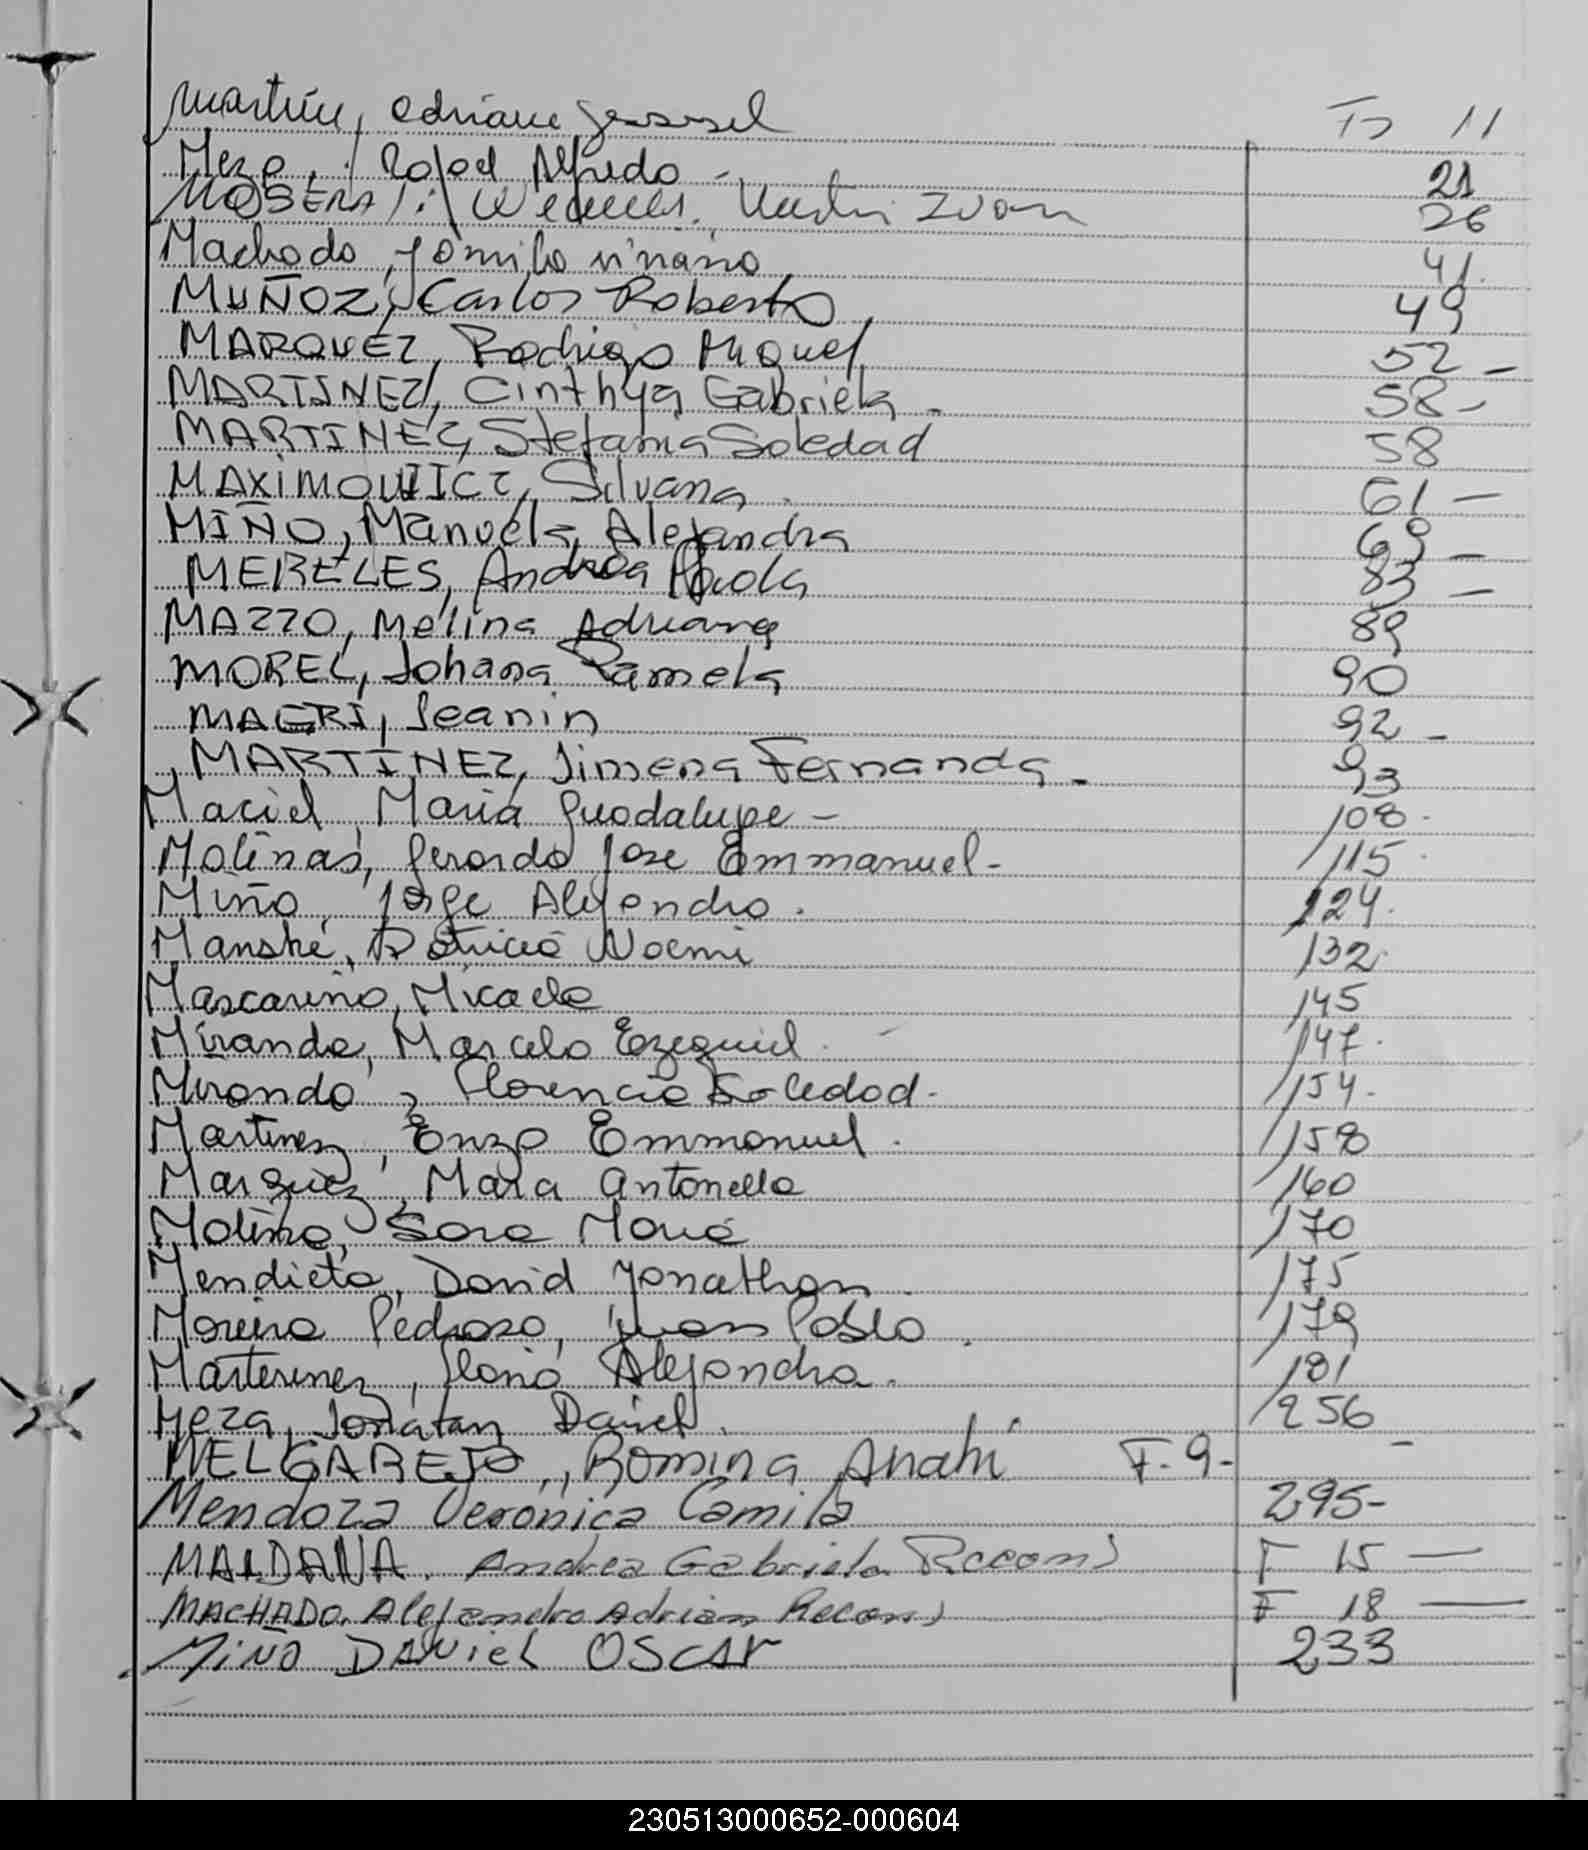 Martín, Adriana Jessabel Fs 11
Meza, Rafael Alfredo - 21
MOSERA Iván 26
Machado, Yamila Viviana 41.
MUÑOZ, Carlos Roberto, 49
MARQUEZ, Rodrigo Miguel 52 -
MARTINEZ, Cinthya Gabriela - 58 -
MARTINEZ, Stefania Soledad 58
MAXIMOWICZ, Silvana. 61 -
MIÑO, Manuela Alejandra 69 -
MERELES, Andrea Paola 83 -
MAZZO, Melina Adriana 89
MOREL, Johana Pamela 90
MAGRI, Jeanin 92 -
MARTINEZ, Jimena Fernanda - 93
Maciel, Maria Guadalupe - 108.
Molinas, Gerardo Jose Emmanuel - 115.
Miño, Jorge Alejandro. 124.
Manske, Patricia Noemi 132.
Mascariño, Micaela 145
Miranda, Marcelo Ezequiel. 147.
Miranda, Florencia Soledad. 154.
Martinez, Enzo Emmanuel. 158
Marquez, Mara Antonella 160
Molina, Sara María 170
Mendieta, David Jonathan. 175
Moreira Pedrozo, Juan Pablo. 179
Marterinez, Alejandra. 181
Meza, Jonatan Daniel. 256
MELGAREJO, Romina Anahí F. 9 - -
Mendoza Veronica Camila 295-
MALDANA. Andrea Gabriela F 15 —
MACHADO. Alejandro Adrian F 18 —
Miño DANiel OSCAr 233
230513000652-000604